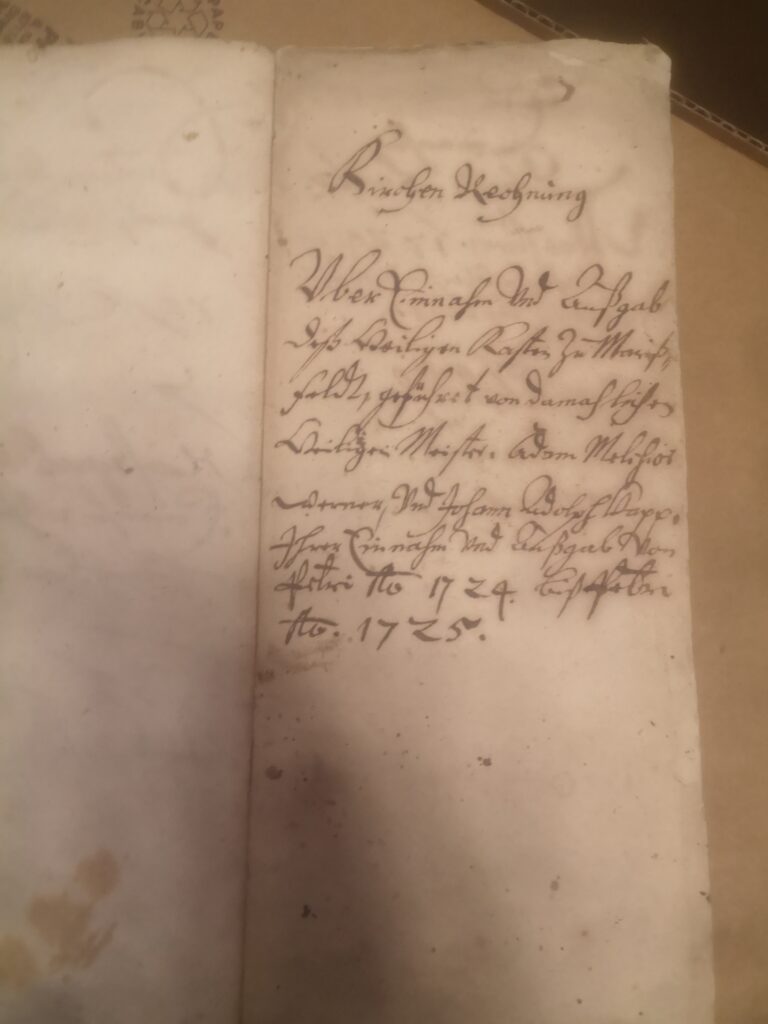 Kirchen Rechnung
Uber Einnahm Und Außgab
deß Heiligen Kasten Zu Mariß,,
feldt, geführet von damahlichen
Heiligen Meister. Adam Melchior
Werner, Und Johann Adolph Kapp.
Ihrer Einnahm und Außgab Von
Petri Ao 1724. biß Petri
Ao. 1725.